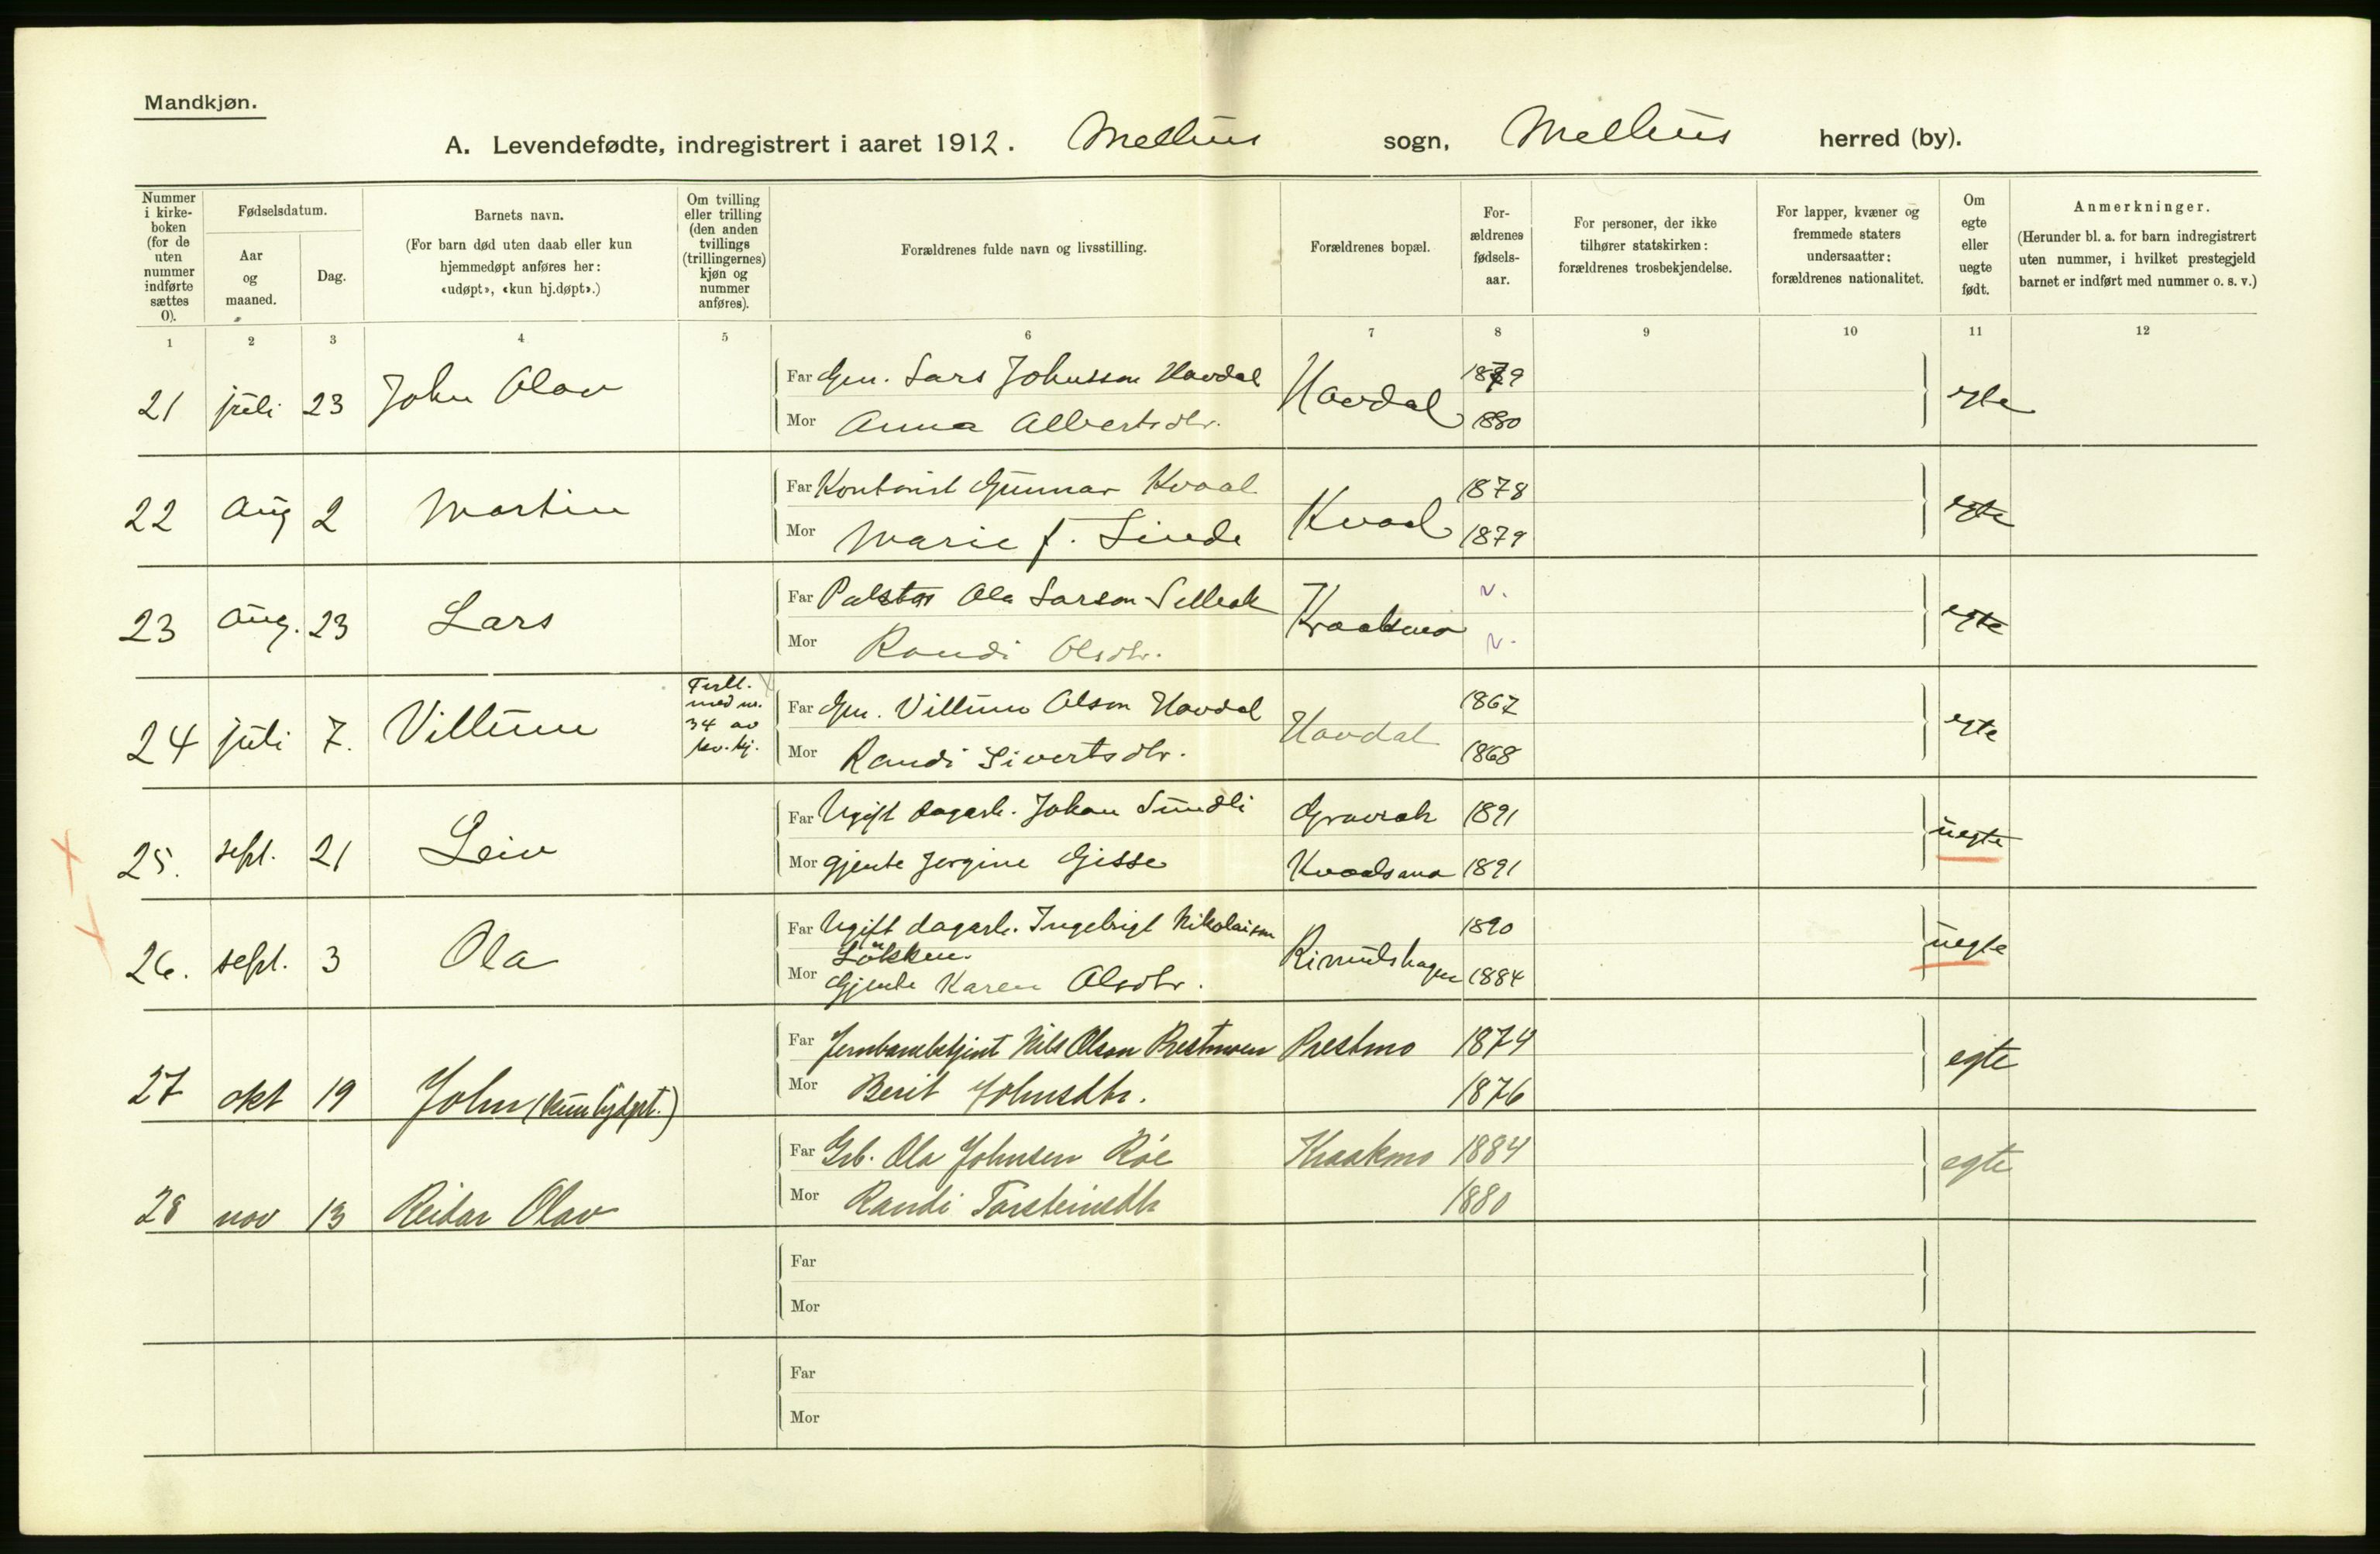 Mandkjøn.
A. Levendefødte, indregistrert i aaret 1912. Melhus sogn, Melhus herred (by).
Nummer i kirke-boken (for de uten nummer indførte sættes 0).
Fødselsdatum.
Aar og maaned.
Dag.
Barnets navn.
(For barn død uten daab eller kun hjemmedøpt anføres her: «udøpt», «kun hj.døpt».)
Om tvilling eller trilling (den anden tvillings (trillingernes) kjøn og nummer anføres).
Forældrenes fulde navn og livsstilling.
Forældrenes bopæl.
For-ældrenes fødsels-aar.
For personer, der ikke tilhører statskirken: forældrenes trosbekjendelse.
For lapper, kvæner og fremmede staters undersaatter: forældrenes nationalitet.
Om egte eller uegte født.
Anmerkninger.
(Herunder bl. a. for barn indregistrert uten nummer, i hvilket prestegjeld barnet er indført med nummer o. s. v.)
1 2 3 4 5 6 7 8 9 10 11 12
21 juli 23 John Olav Far Gm. Lars Johnsson Havdal Havdal 1879 egte
Mor Anna Albertsdtr. 1880
22 Aug 2 Martin Far Kontorist Gunnar Kvaal Kvaal 1878 egte
Mor Marie f. Linde 1879
23 Aug. 23 Lars Far Ola Larson egte
Mor Randi Olsdtr.
24 juli 7. Villum Tvill. med nr. 34 av kv.kj. Far Gm. Villum Olson Havdal Havdal 1867 egte
Mor Randi Sivertsdtr. 1868
25. sept. 21 Leiv Far Ugift dagarb. Johan Sundli Gravrak 1891 uegte
Mor Gjente Jørgine Gisse Kvaalsmo 1891
26. sept. 3 Ola Far Ugift dagarb. Ingebrigt Nikolaison 1890 uegte
Løkken.
Mor Gjente Karen Olsdtr. Rimulshagen 1884
27 okt 19 John (kun hjdpt.) Far Jernbanebetjent Nils Olson Prestmoen Prestmo 1874 egte
Mor Berit Johnsdtr. 1876
28 nov 13 Reidar Olav Far Grb. Ola Johnsen Røe Kraakmo 1884 egte
Mor Randi Torsteinsdtr 1880
Far
Mor
Far
Mor